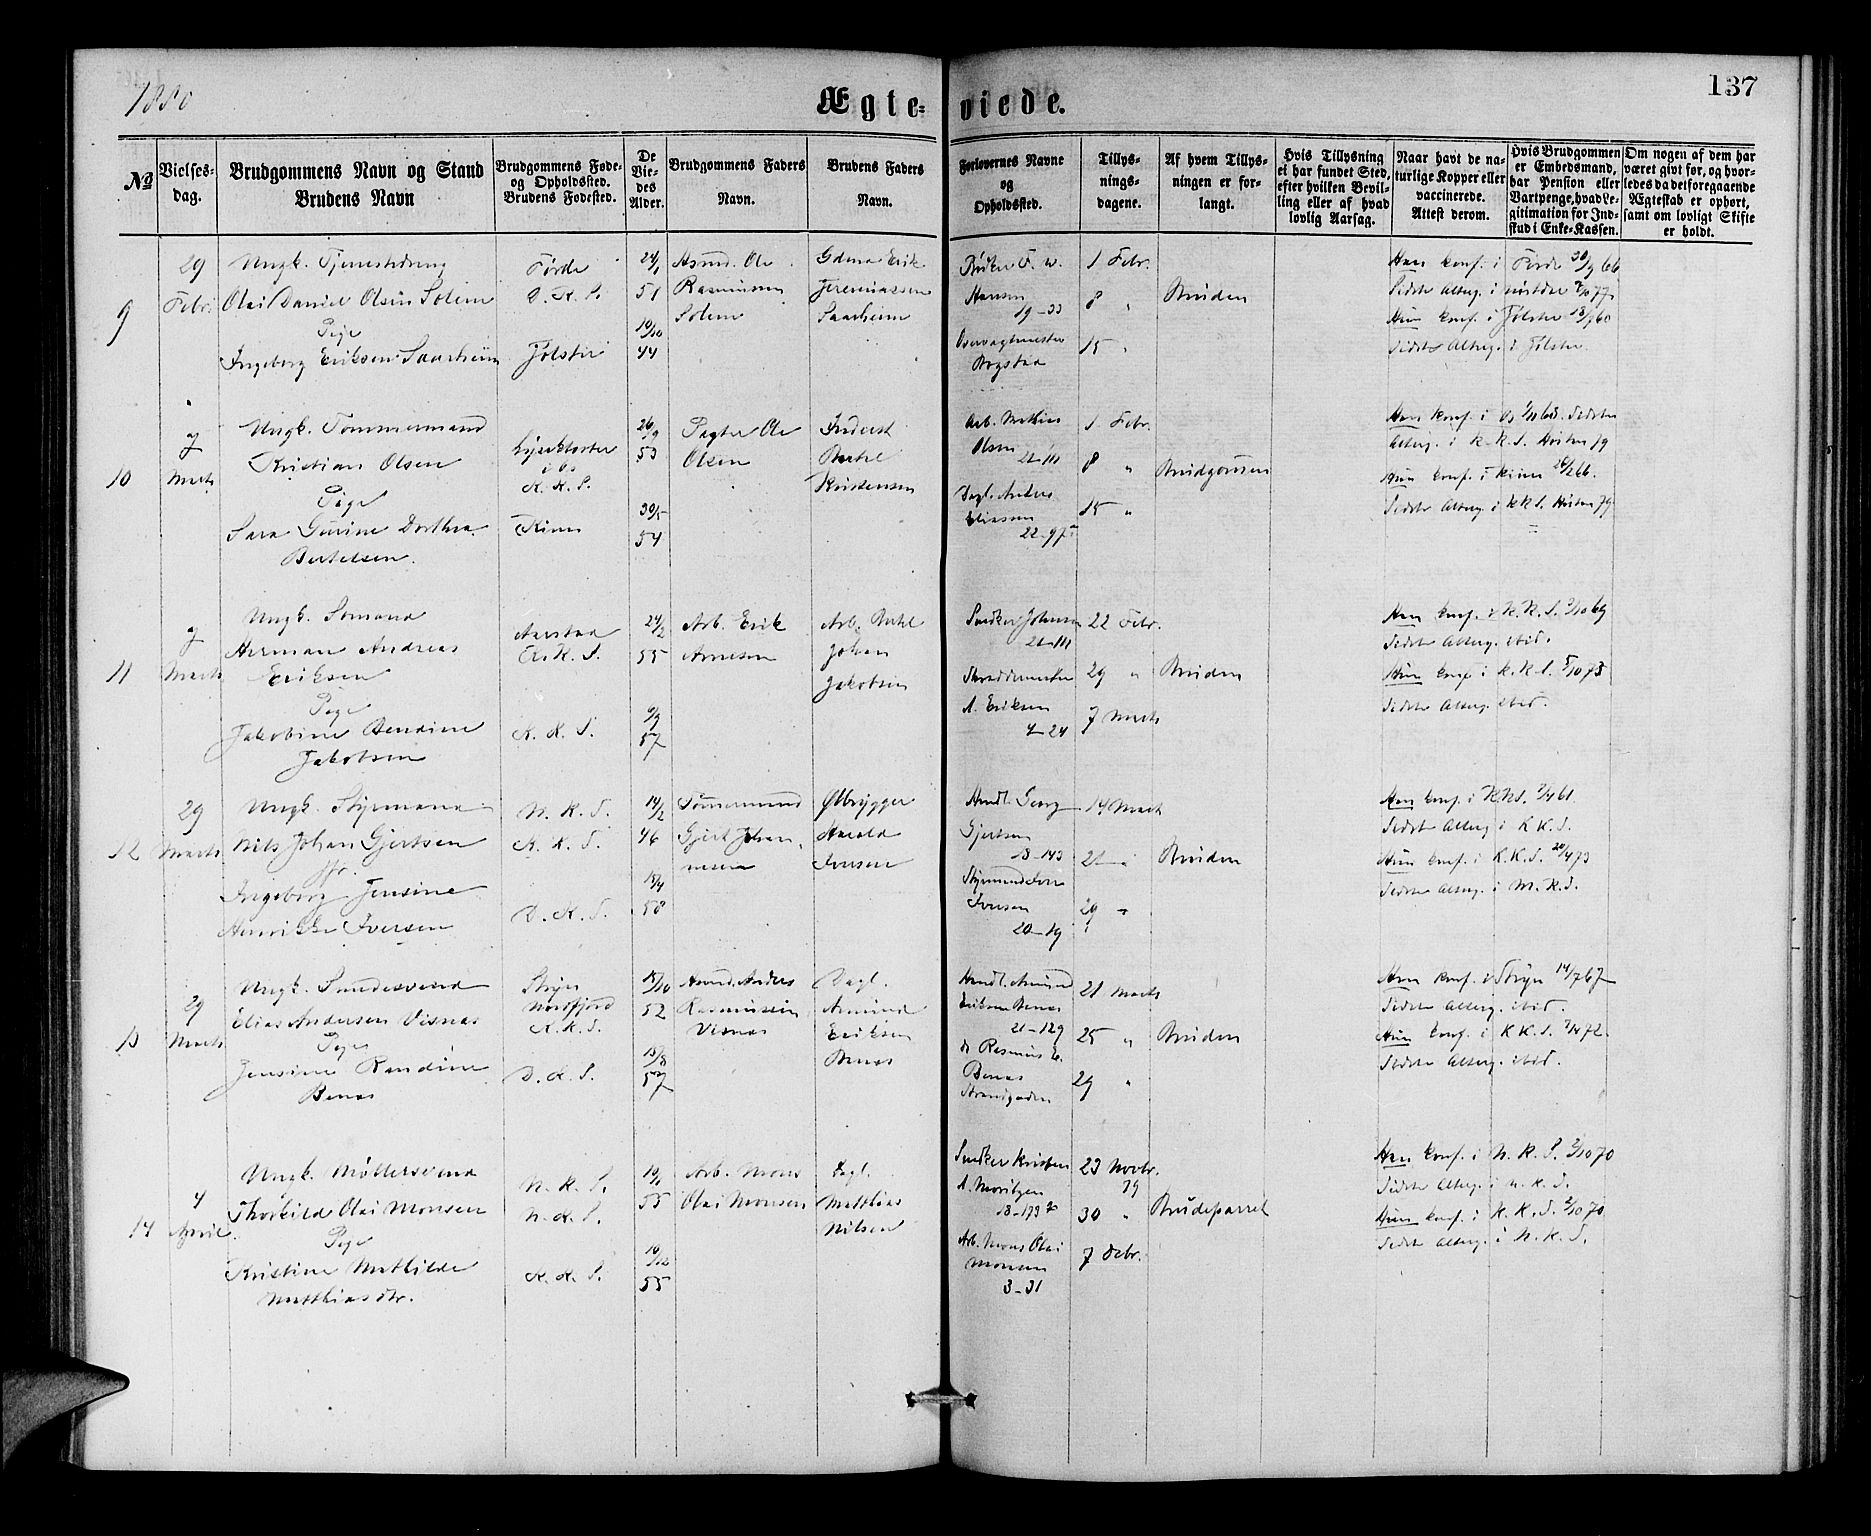 1880
Ægte-viede.
137
No
Vielses-
dag.
Brudgommens Navn og Stand
Brudens Navn
Brudgommens Føde-
og Opholdssted.
Brudens Fødested.
De
Vie-
des
Alder.
Brudgommens Faders
Navn.
Brudens Faders
Navn.
Forlovernes Navne
og
Opholdssted.
Tillys-
nings-
dagene.
Af hvem Tillys-
ningen er for-
langt.
Hvis Tillysning
ei har fundet Sted,
efter hvilken Bevil-
ling eller af hvad
lovlig Aarsag.
Naar havt de na-
turlige Kopper eller
vaccinerede.
Attest derom.
Hvis Brudgommen
er Embedsmand,
har Pension eller
Vartpenge, hvad Le-
gitimation for Ind-
skud i Enke-Kassen.
Om nogen af dem har
været givt før, og hvor-
ledes da det foregaaende
Ægteskab er ophørt,
samt om lovligt Skifte
er holdt.
9
29
Febr.
Ungk. Tjenestedreng
Olai Daniel Olsen Solem
Pige
Ingeborg Eriksen Saarheim
Førde
D. K. S.
Jølster
24/1
51
10/10
44
Ole
Rasmussen
Solem
Erik
Jeremiassen
Saarheim
F. W.
Hansen
19-33
1 Febr.
8 "
15 "
Bruden
Han conf. i Førde 30/9 66
Sidste Alterg. i
Hun conf. i Jølster 13/7 60
Sidste Alterg. i Jølster
10
7
Marts
Ungk. Tømmermand
Kristian Olsen
Pige
Sara Gurine Dorthea
Bertelsen.
K. K. S.
Kinn
26/9
53
30/5
54
Ole
Olsen
Inderst
Bertel
Kristensen
Arb. Mathias
Olsen
21-111
Dagl. Anders
Eliassen
22-97
1 Febr.
8 "
15 "
Brudgommen
Han conf. i Os
Sidste
Alterg. i K. K. S. Høsten 79
Hun conf. i Kinn 26/2 66.
Sidste Alterg. i K K S. Høsten 79
11
7
Marts
Ungk. Sømand
Herman Andreas
Eriksen
Pige
Jakobine Bendine
Jakobsen
Aarstad
K. K. S.
K. K. S.
24/2
55
6/9
57
Arb. Erik
Arnesen
Arb.
Johan
Jakobsen
Snedker Johnsen
21-111
Skræddermester
A. Eriksen
4-24
22 Febr.
29 "
7 Marts
Bruden
Han conf. i K. K. S. 3/10 69
Sidste Alterg. ibid.
Hun conf. i K. K. S. 5/10 73
Sidste Alterg. ibid.
12
29
Marts
Ungk. Styrmand
Nils Johan Gjertsen
Jfr.
Ingeborg Jensine
Henrikke Iversen
N. K. S.
K. K. S.
D. K. S.
14/2
46
15/4
58
Tømmermand
Gjert Johan-
nesen
Ølbrygger
Harald
Iversen
Handl. Georg
Gjertsen
13-143
Styrmand Iver
Iversen
20-19
14 Marts
21 "
29 "
Bruden
Han conf. i K K S. 7/4 61
Sidste Alterg. i K K S.
Hun conf. i K. K. S. 20/4 73
Sidste Alterg. i M. K. S.
13
29
Marts
Ungk. Sundesvend
Elias Andersen Visnæs
Pige
Jensine Randine
Benæs
Stryn
Nordfjord
K. K. S.
D. K. S.
15/10
52
13/8
57
Anders
Rasmussen
Visnæs
Dagl.
Amund
Eriksen
Benæs
Handl. Amund
Eriksen Benæs
21-129
do Rasmus E.
Benæs
Strandgaden
21 Marts
25 "
29 "
Bruden
Han conf. i Stryn 14/7 67
Sidste Alterg. ibid.
Hun conf. i K K. S. 7/4 72.
Sidste Alterg. ibid.
14
4
April
Ungk. Møllersvend
Thorkild Olai Monsen
Pige
Kristine Mathilde
Matthiasdtr.
N. K. S.
N. K. S.
K. K. S.
10/1
55
10/12
55
Arb. Mons
Olai Monsen
Dagl.
Matthias
Nilsen
Snedker Kristen
A. Moritzen
13-173
Arb. Mons Olai
Monsen
3-31
23 Novbr.
79
30 "
7 Decbr.
Brudeparret
Han conf. i N. K. S. 2/10 70
Sidste Alterg. i N. K. S.
Hun conf. i K. K. S. 2/10 70
Sidste Alterg. i N. K. S.